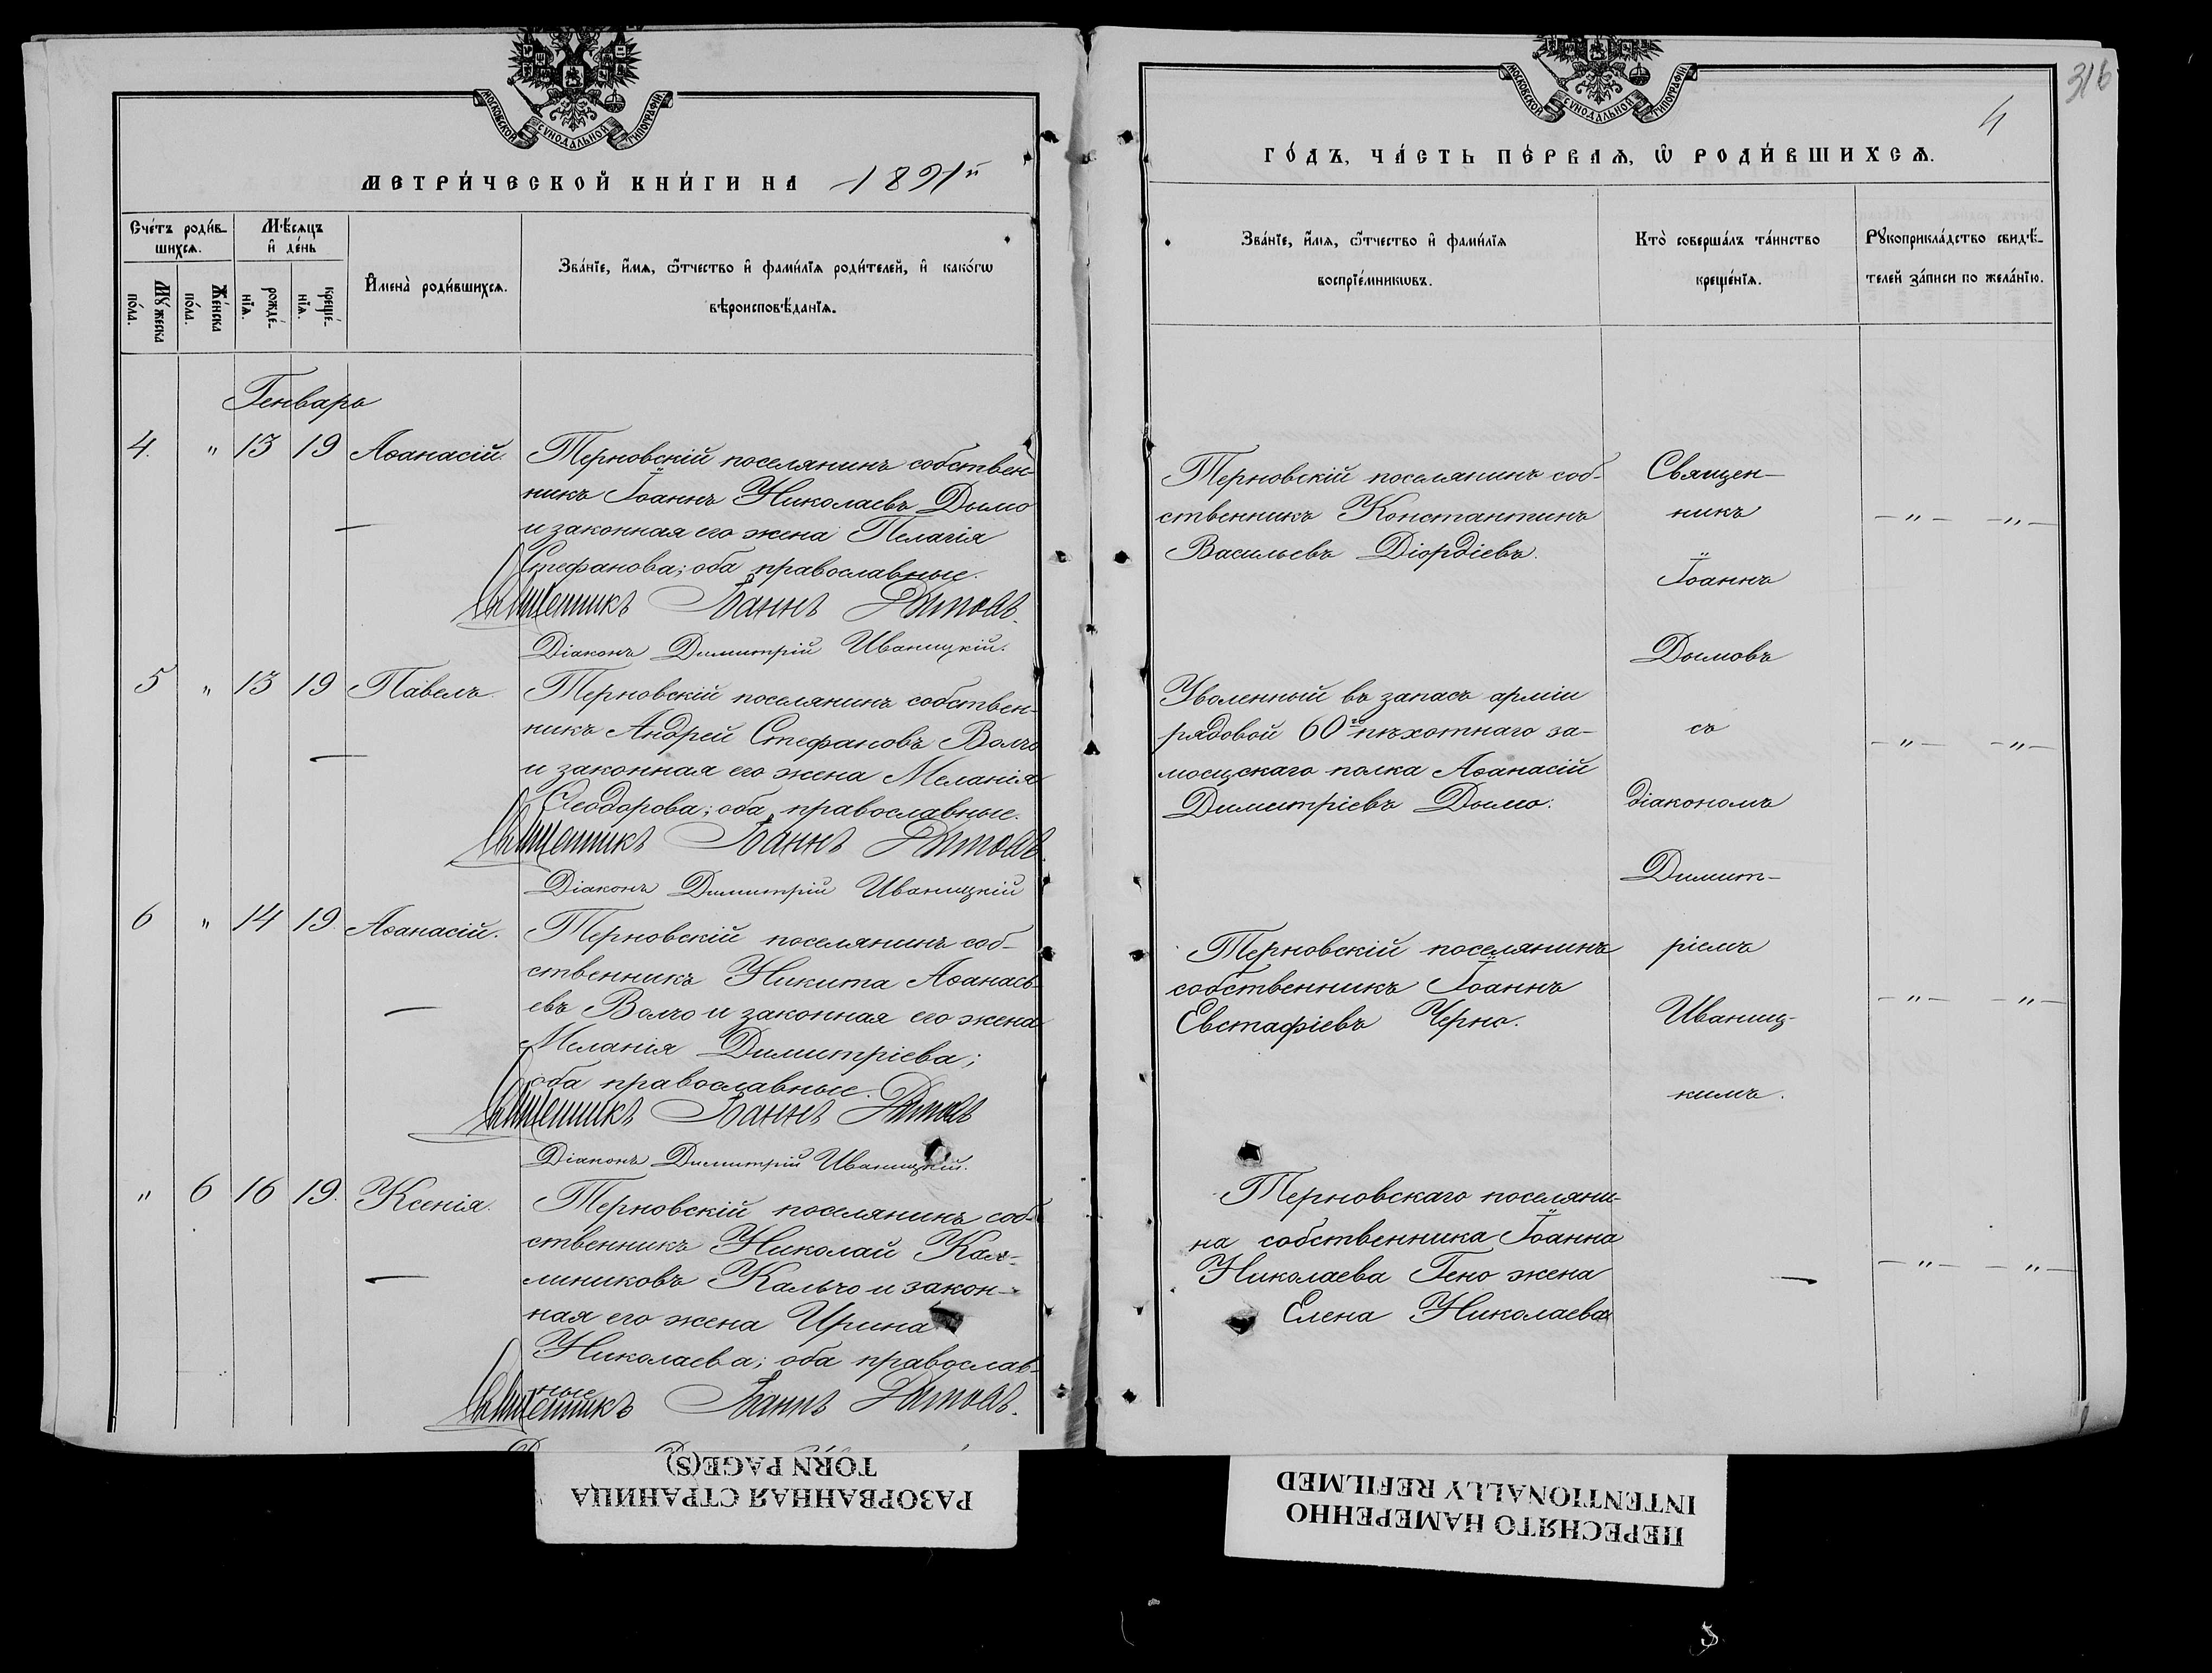 МОСКОВСКОЙ СѴНОДАЛЬНОЙ ТИПОГРАФІИ
МЕТРИ́ЧЕСКОЙ КНИ́ГИ НА 1891й
Сче́тъ роди́в-
шихсѧ.
Мѣ́сѧцъ
и҆ де́нь
Мꙋ́жеска
по́ла.
Же́нска
по́ла.
рожде́-
нїѧ.
креще́-
нїѧ.
И҆мена̀ роди́вшихсѧ.
Зва́нїе, и҆́мѧ, ѻ҆́тчество и҆ фами́лїѧ роди́телей, и҆ како́гѡ
вѣроисповѣ́данїѧ.
Генварь
4. " 13 19 Аѳанасій.
Терновскій поселянинъ собствен-
никъ Іоаннъ Николаевъ Дымо
и законная его жена Пелагія
Стефанова; оба православные.
Священникъ Іоаннъ Дымовъ.
Діаконъ Димитрій Иваницкій.
5 " 13 19 Павелъ.
Терновскій поселянинъ собствен-
никъ Андрей Стефановъ Волчо
и законная его жена Меланія
Ѳеодорова; оба православные.
Священникъ Іоаннъ Дымовъ.
Діаконъ Димитрій Иваницкій
6 " 14 19. Аѳанасій.
Терновскій поселянинъ соб-
ственникъ Никита Аѳанась-
евъ Волчо и законная его жена
Меланія Димитріева;
оба православные.
Священникъ Іоаннъ Дымовъ
Діаконъ Димитрій Иваницкій.
" 6 16 19. Ксенія.
Терновскій поселянинъ соб-
ственникъ Николай Кал-
миниковъ Кальчо и закон-
ная его жена Ирина
Николаева; оба православ-
ные
Священникъ Іоаннъ Дымовъ.
РАЗОРВАННАЯ СТРАНИЦА
TORN PAGE(S)
316
4
МОСКОВСКОЙ СѴНОДАЛЬНОЙ ТИПОГРАФІИ
ГО́ДЪ, ЧА́СТЬ ПЕ́РВАѦ, Ѡ҆ РОДИ́ВШИХСѦ.
Зва́нїе, и҆́мѧ, ѻ҆́тчество и҆ фами́лїѧ
воспрїе́мникѡвъ.
Кто̀ соверша́лъ та́инство
креще́нїѧ.
Рꙋкоприкла́дство свидѣ́-
телей за́писи по жела́нїю.
Терновскій поселянинъ соб-
ственникъ Константинъ
Васильевъ Діордіевъ.
Уволенный въ запасъ арміи
рядовой 60го пѣхотнаго за-
мосцскаго полка Аѳанасій
Димитріевъ Дымо.
Терновскій поселянинъ
собственникъ Іоаннъ
Евстафіевъ Черно.
Терновскаго поселяни-
на собственника Іоанна
Николаева Гено жена
Елена Николаева
Священ-
никъ
Іоаннъ
Дымовъ
съ
діакономъ
Димит-
ріемъ
Иваниц-
кимъ.
ПЕРЕСНЯТО НАМЕРЕННО
INTENTIONALLY REFILMED